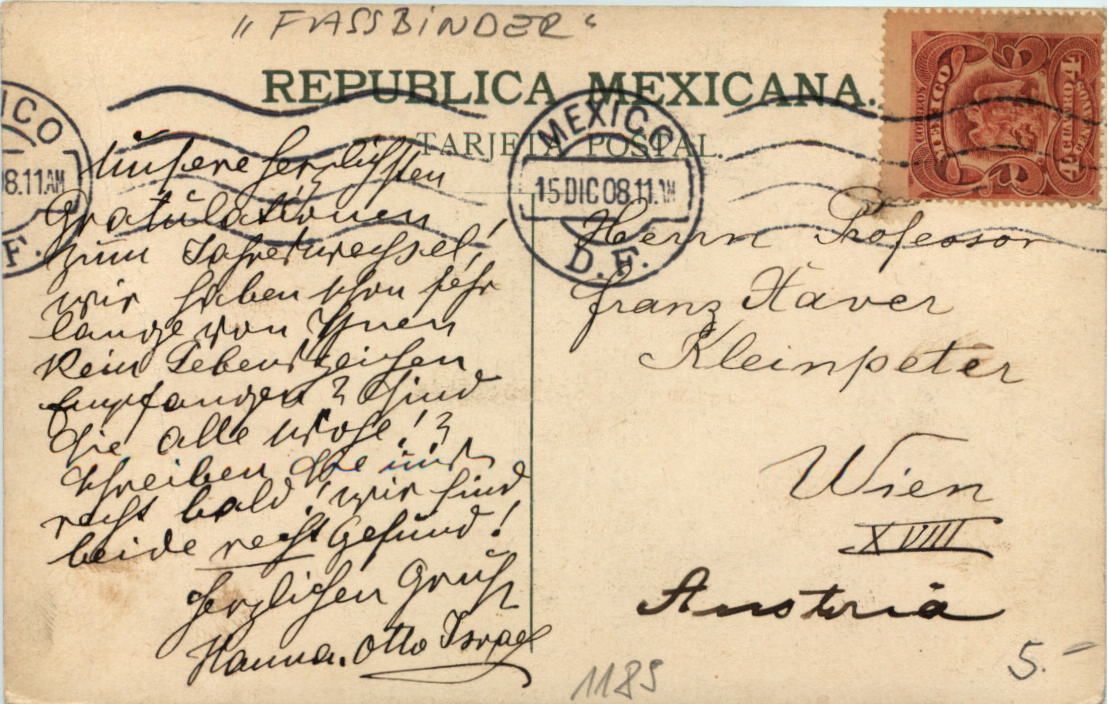 "FASSBINDER"
REPUBLICA MEXICANA.
TARJETA POSTAL.
MEXICO
15 DIC 08.11 AM
D.F.
ICO
08.11 AM
F.
CORREOS
MEXICO
Unsere herzlichsten
Gratulationen
zum Jahreswechsel!
wir haben schon sehr
lange von Ihnen
kein Lebenszeichen
empfangen? Sind
Sie alle wohl!?
Schreiben Sie uns
recht bald! wir sind
beide recht gesund!
Herzlichen Gruß
Hanna. Otto Israel
Herrn Professor
Franz Xaver
Kleinpeter
Wien
XVIII
Austria
1185
5.-